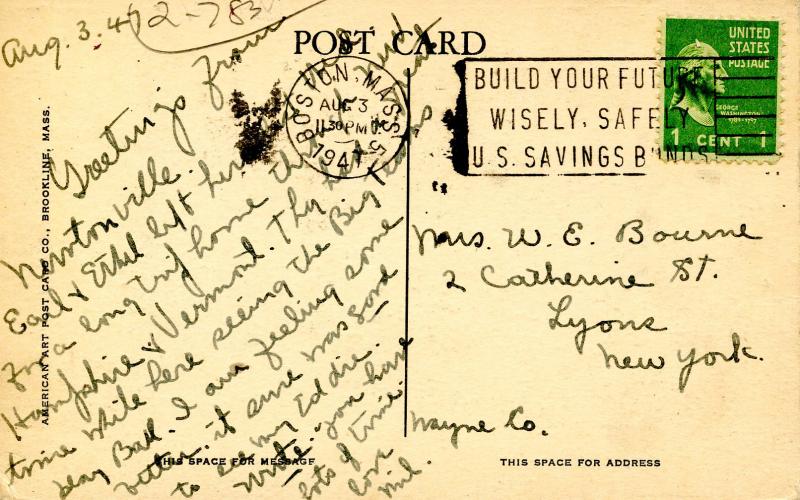 Aug. 3. 47
2-783
POST CARD
Greetings from
Newtonville.
Earl & Ethel left here
For a long trip home thru New
Hampshire & Vermont. They had a
time while here seeing the Big Teams
play Ball. I am feeling some
better. it sure was good
to see my Eddie.
Write. you have
lots of time.
love
Mil.
BOSTON, MASS.
AUG 3
11:30 PM
1947
BUILD YOUR FUTURE
WISELY, SAFELY
U.S. SAVINGS BONDS
UNITED
STATES
POSTAGE
GEORGE
WASHINGTON
1789-1797
1 CENT 1
Mrs. W. E. Bourne
2 Catherine St.
Lyons
New York.
Wayne Co.
AMERICAN ART POST CARD CO., BROOKLINE, MASS.
THIS SPACE FOR MESSAGE
THIS SPACE FOR ADDRESS